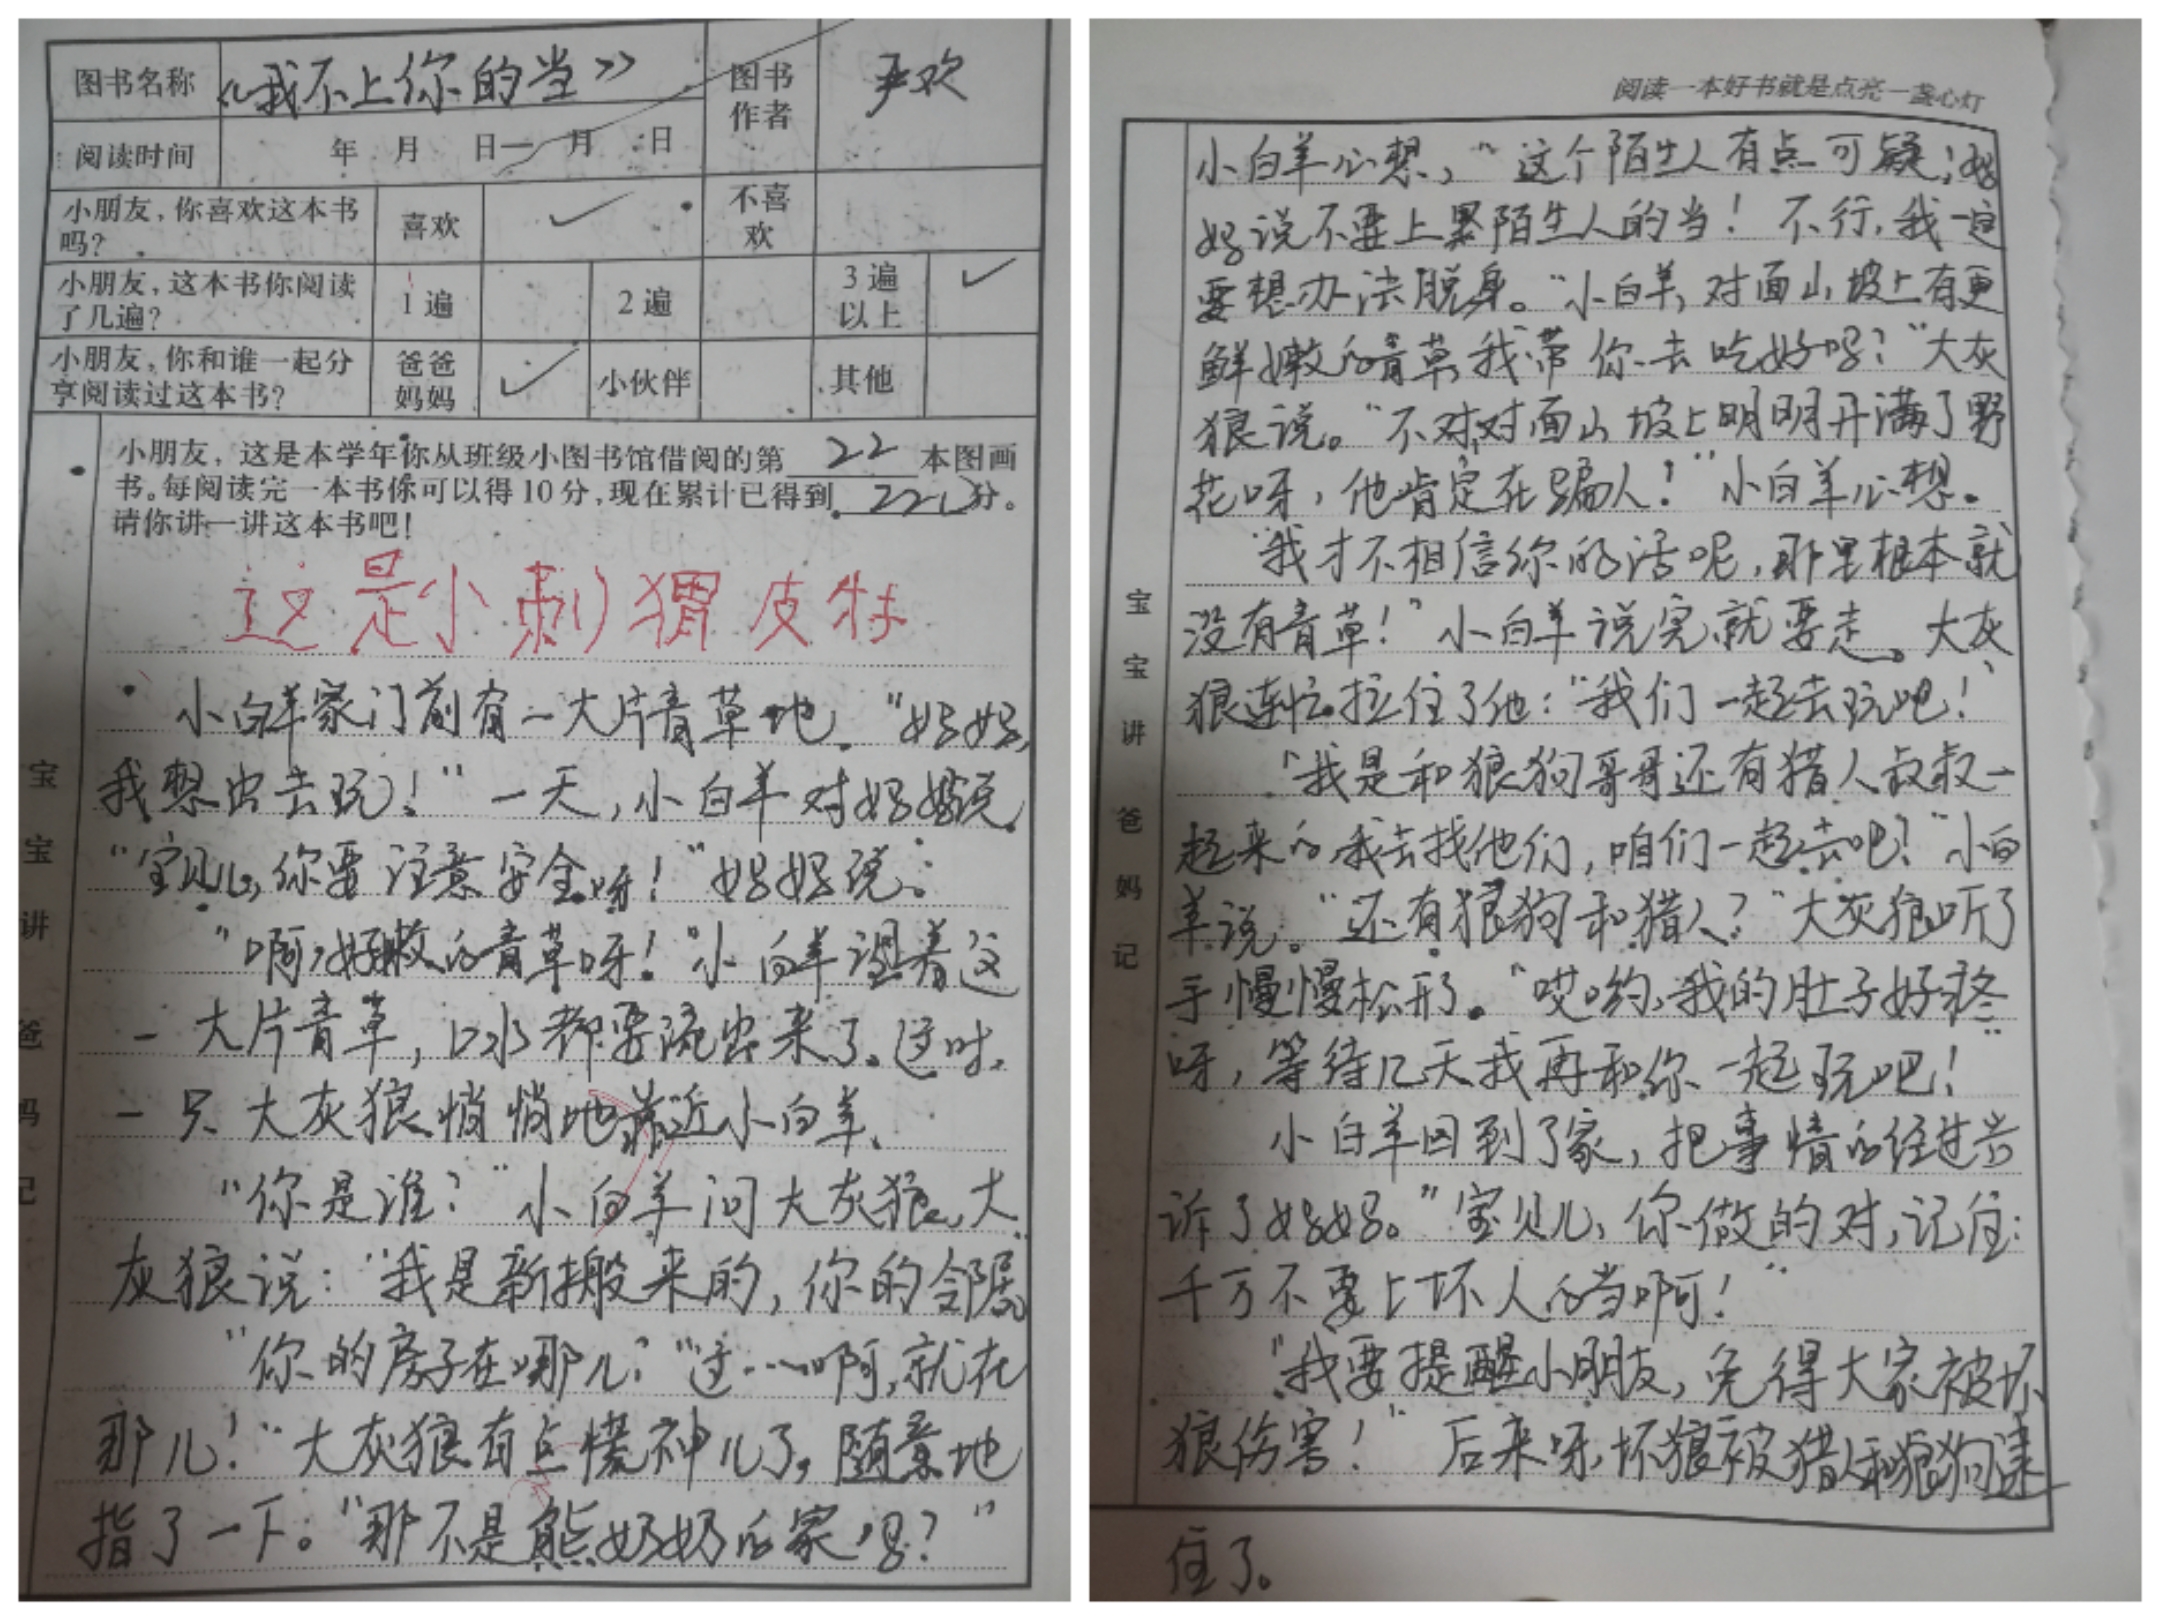 图书名称 《我不上你的当》 图书作者 严欢
阅读时间 年 月 日— 月 日
小朋友,你喜欢这本书吗? 喜欢 ✓ 不喜欢
小朋友,这本书你阅读了几遍? 1遍 2遍 3遍以上 ✓
小朋友,你和谁一起分享阅读过这本书? 爸爸妈妈 ✓ 小伙伴 其他
小朋友,这是本学年你从班级小图书馆借阅的第 22 本图画
书。每阅读完一本书你可以得10分,现在累计已得到 220 分。
请你讲一讲这本书吧!
这是小刺猬皮特
宝宝讲 爸妈记
小白羊家门前有一大片青草地。“妈妈,
我想出去玩!”一天,小白羊对妈妈说。
“宝贝儿,你要注意安全呀!”妈妈说。
“啊,好嫩的青草呀!”小白羊望着这
一大片青草,口水都要流出来了。这时,
一只大灰狼悄悄地靠近小白羊、
“你是谁?”小白羊问大灰狼。大
灰狼说:“我是新搬来的,你的邻居”
“你的房子在哪儿?”“这……啊,就在
那儿!”大灰狼有点慌神儿了,随意地
指了一下。“那不是熊奶奶的家吗?”
阅读一本好书就是点亮一盏心灯
宝宝讲 爸妈记
小白羊心想,“这个陌生人有点可疑;妈
妈说不要上陌生人的当!不行,我一定
要想办法脱身。“小白羊,对面山坡上有更
鲜嫩的青草,我带你去吃好吗?”大灰
狼说。“不对,对面山坡上明明开满了野
花呀,他肯定在骗人!”小白羊心想。
“我才不相信你的话呢,那里根本就
没有青草!”小白羊说完就要走。大灰
狼连忙拉住了他:“我们一起去玩吧!”
“我是和狼狗哥哥还有猎人叔叔一
起来的,我去找他们,咱们一起去吧!”小白
羊说。“还有狼狗和猎人?”大灰狼听了
手慢慢松开了。“哎哟,我的肚子好疼
呀,等待几天我再和你一起玩吧!”
小白羊回到了家,把事情的经过告
诉了妈妈。“宝贝儿,你做的对,记住:
千万不要上坏人的当啊!”
“我要提醒小朋友,免得大家被坏
狼伤害!”后来呀,坏狼被猎人和狼狗逮
住了。